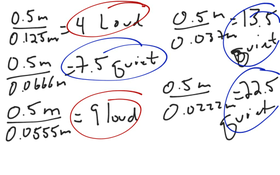 0.5m
0.125m = 4 Loud
0.5m
0.0666m = 7.5 quiet
0.5m
0.0555m = 9 loud
0.5m
0.037m = 13.5
quiet
0.5m
0.0222m = 22.5
quiet